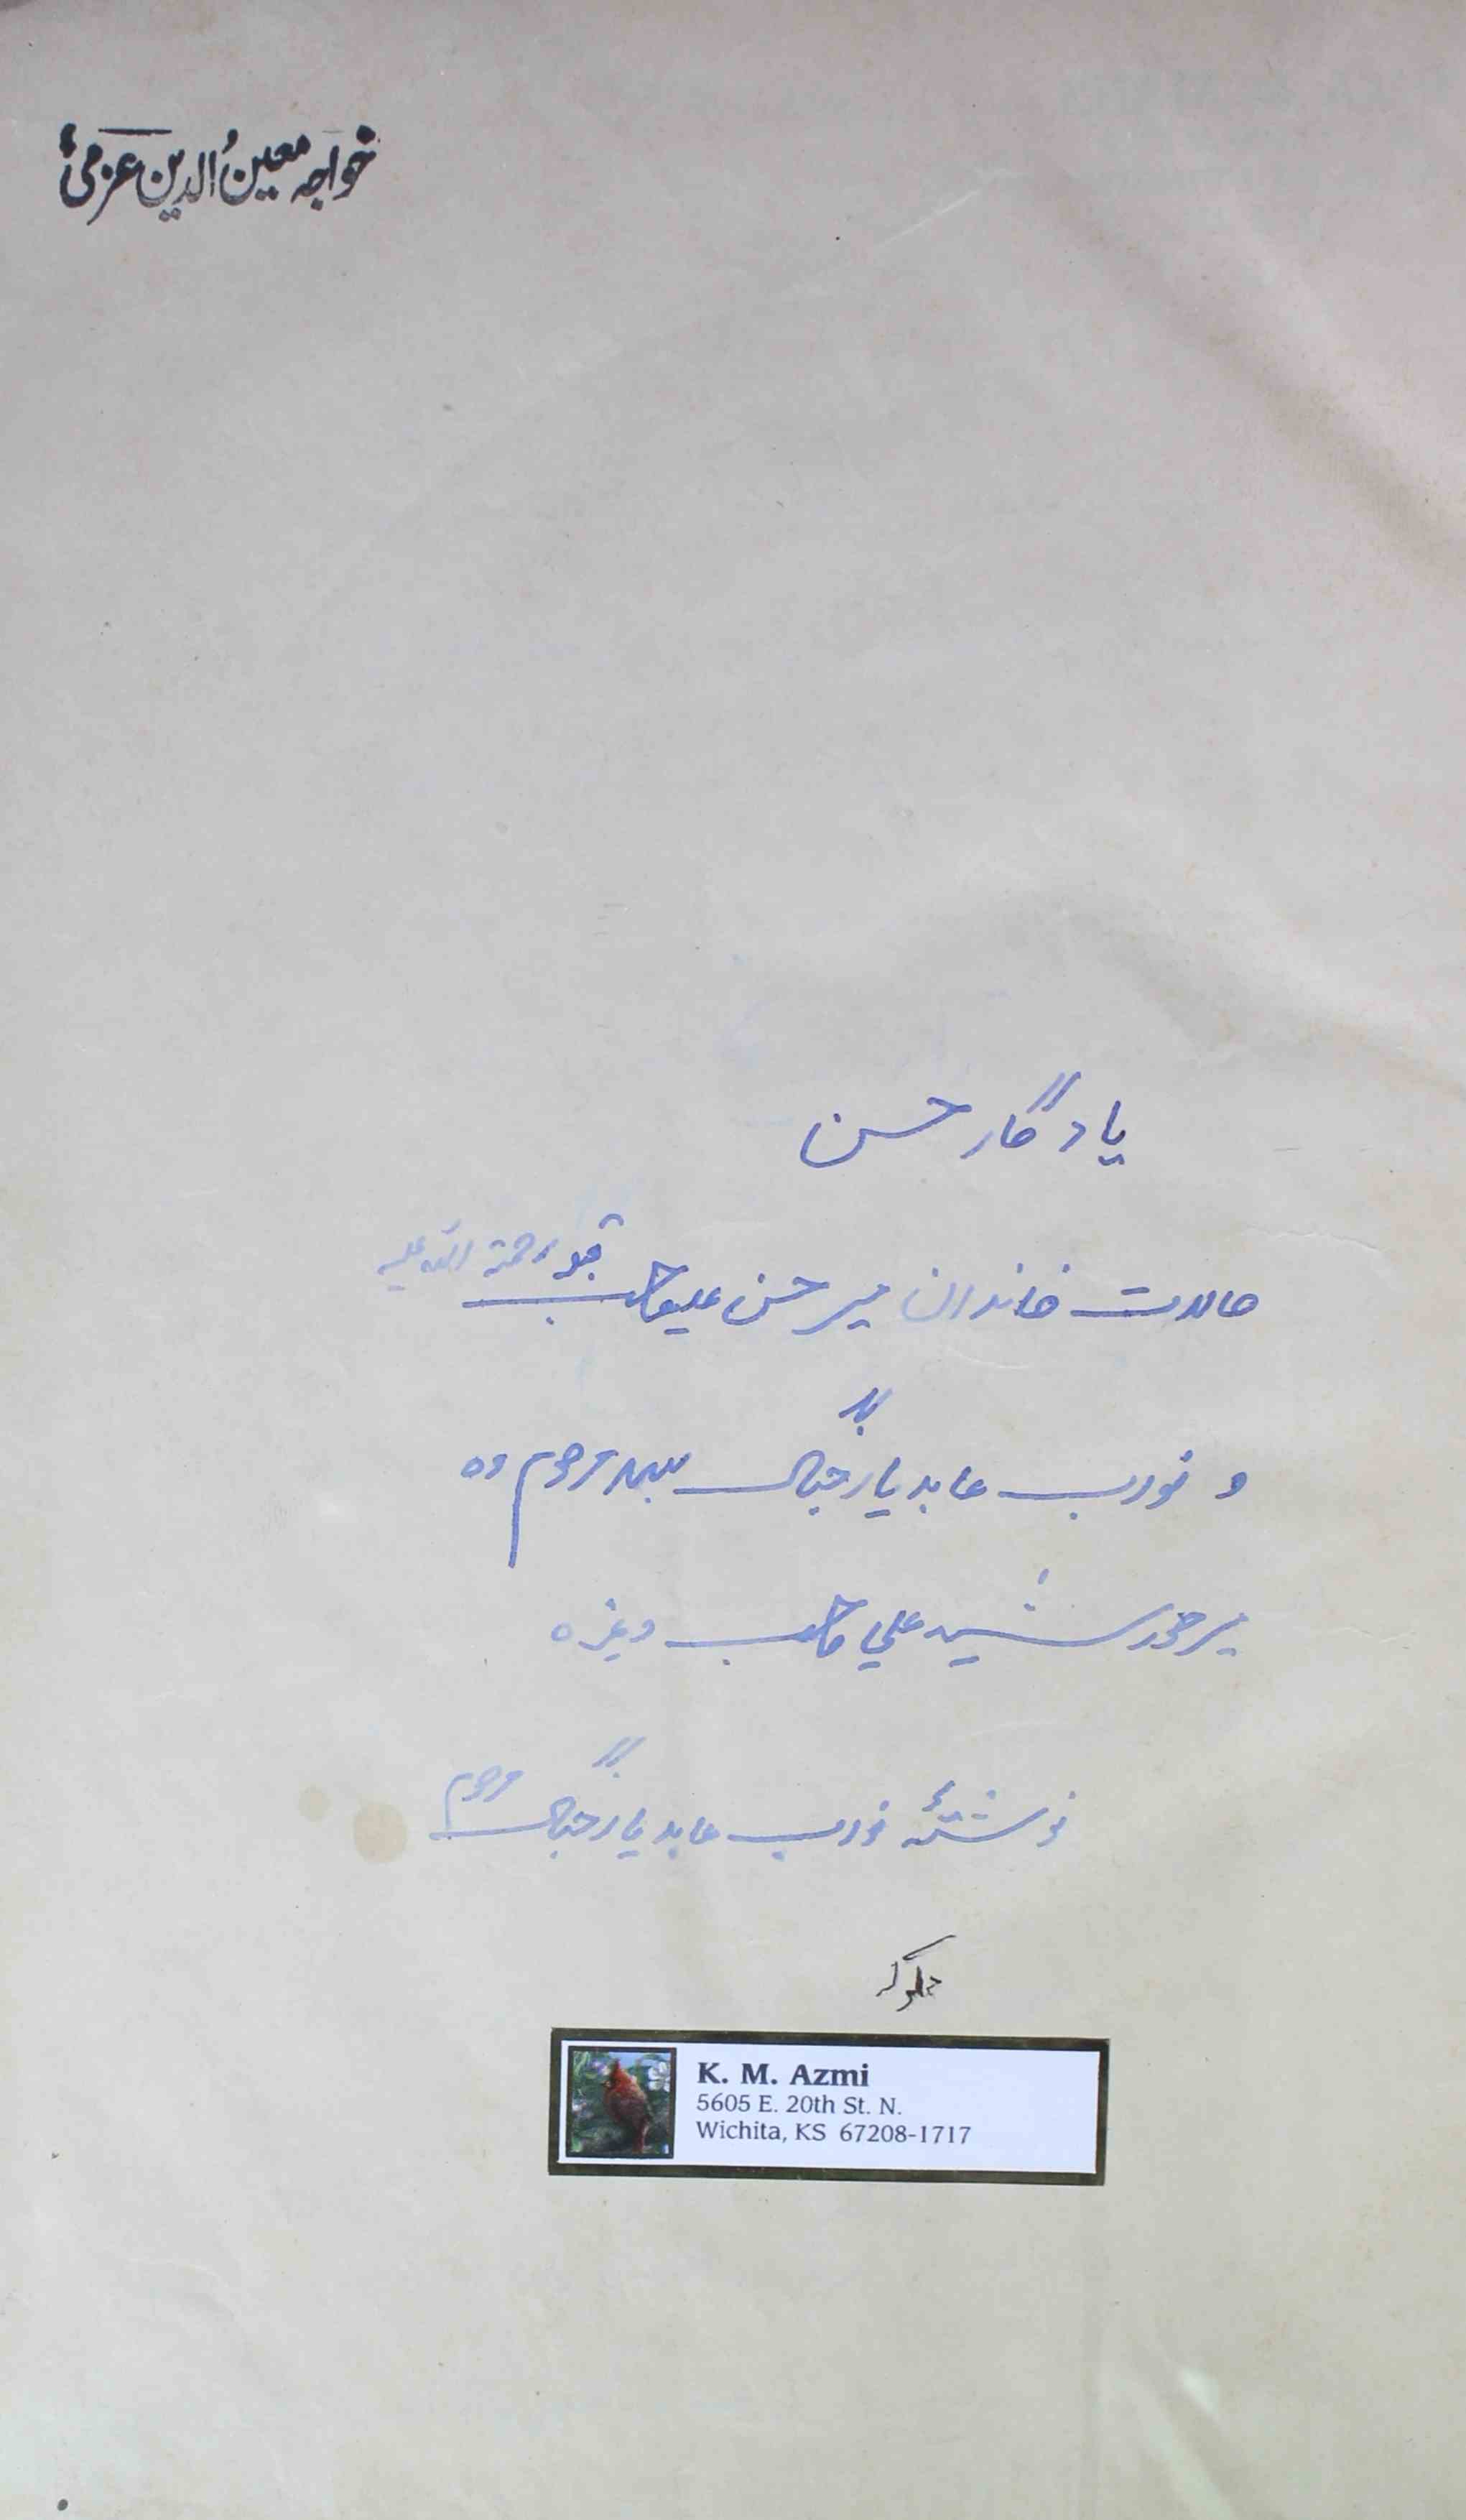 خواجہ معین الدین عزمی
یادگار حسن
حالات خاندان میر حسن علیصاحب قبلہ رحمۃ اللہ علیہ
و نواب عابد یار جنگ بہادر مرحوم و
میر خورشید علی صاحب وغیرہ
نوشتۂ نواب عابد یار جنگ مرحوم
مملوکہ
K. M. Azmi
5605 E. 20th St. N.
Wichita, KS 67208-1717